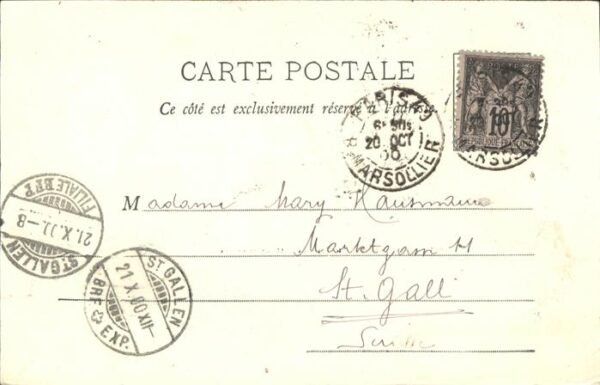 CARTE POSTALE
Ce côté est exclusivement réservé à l'adresse
PARIS
20 OCT
R. MARSOLLIER
10
MARSOLLIER
Madame Mary Hausmann
Marktgasse 11
St. Gall
Suisse
ST. GALLEN
21.X.
FILIALE
ST. GALLEN
21.X.00.XII-
BRF. EXP.